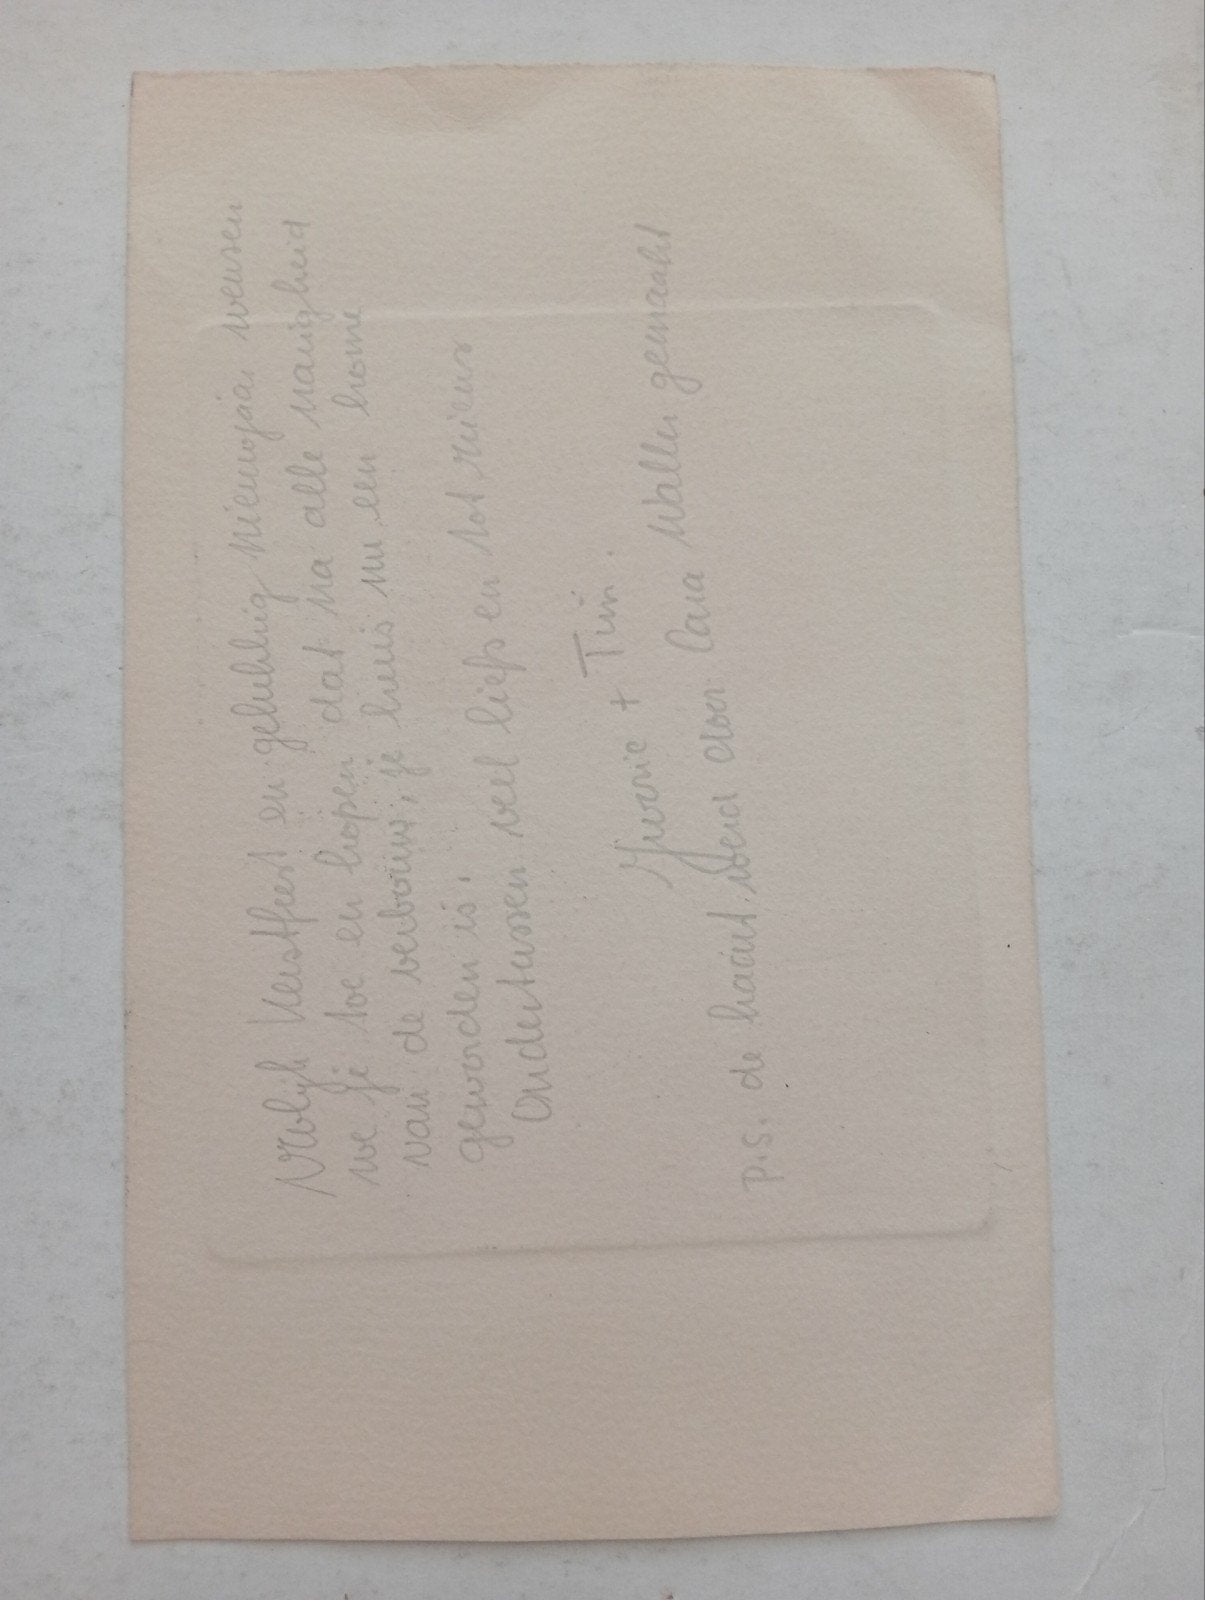 Vrolijk kerstfeest en gelukkig nieuwjaar wensen
we je toe en hopen dat na alle narigheid
van de verbouw, je huis nu een home
geworden is.
Ondertussen veel liefs en tot ziens
Yvonne + Tim.
p.s. de kaart werd door Lara Waller gemaakt